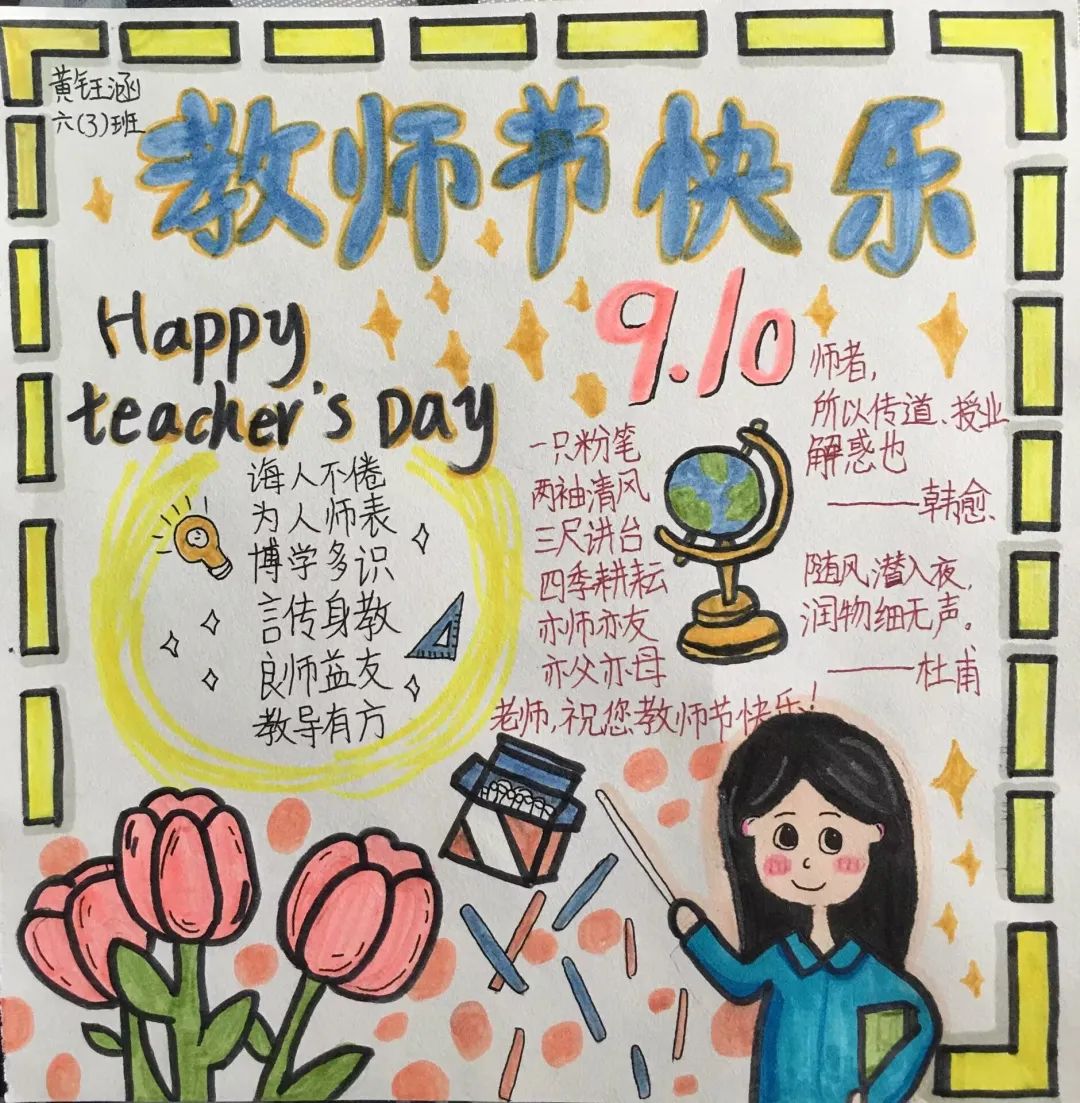 黄钰涵
六(3)班
教师节快乐
Happy
teacher's Day
9.10
诲人不倦
为人师表
博学多识
言传身教
良师益友
教导有方
一只粉笔
两袖清风
三尺讲台
四季耕耘
亦师亦友
亦父亦母
老师,祝您教师节快乐!
师者,
所以传道、授业
解惑也
——韩愈
随风潜入夜,
润物细无声。
——杜甫